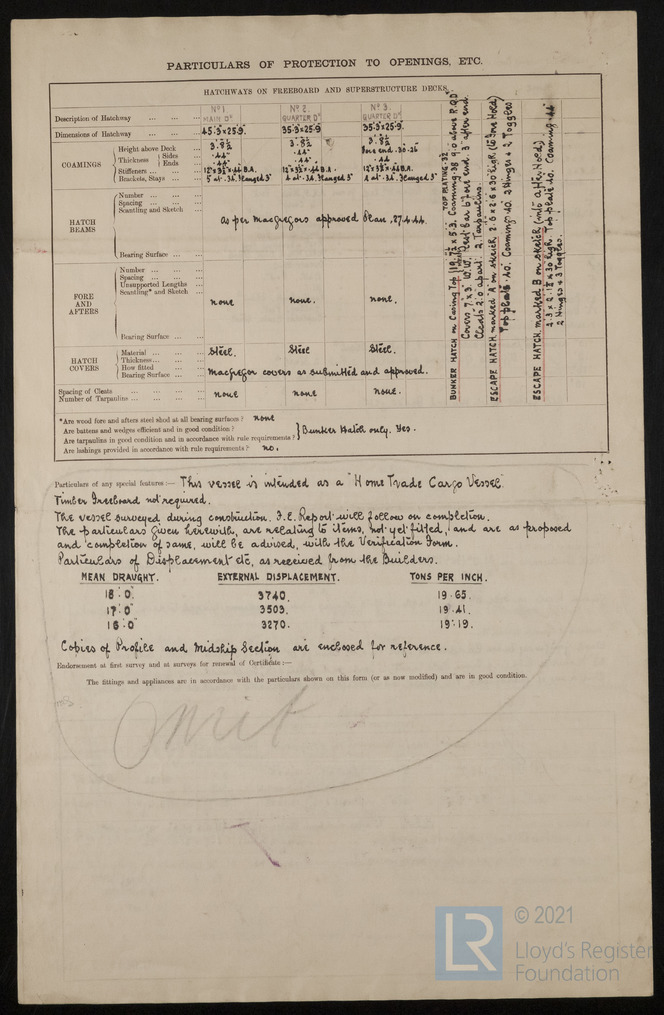 PARTICULARS OF PROTECTION TO OPENINGS, ETC.
HATCHWAYS ON FREEBOARD AND SUPERSTRUCTURE DECKS
Description of Hatchway ... ... ... No 1 MAIN Dk No 2. QUARTER Dk No 3. QUARTER Dk
Dimensions of Hatchway ... ... ... 45.3"×25.9 35.3"×25.9 35.3"×25.9
COAMINGS
Height above Deck ... 3.8½ 3.8½ 3.8½
Thickness { Sides ... .44" .44" fore end .30.36
{ Ends ... .44" .44" .44
Stiffeners ... ... ... 12"×3½"×.44 B.A. 12"×3½"×.44 B.A. 12"×3½"×.44 B.A.
Brackets, Stays ... ... 5 at .34. Flanged 3" 4 at .34. Flanged 3" 4 at .34. Flanged 3"
HATCH BEAMS
Number ... ... ...
Spacing ... ... ...
Scantling and Sketch
as per MacGregors approved Plan .27.4.44.
Bearing Surface ... ...
FORE AND AFTERS
Number ... ... ...
Spacing ... ... ...
Unsupported Lengths ...
Scantling* and Sketch ...
none none. none.
Bearing Surface ... ...
HATCH COVERS
Material ... ... ... Steel. Steel Steel.
Thickness... ... ...
How fitted ... ... MacGregor covers as submitted and approved.
Bearing Surface ... ...
Spacing of Cleats ... ... ... ...
Number of Tarpaulins ... ... ... none none none.
TOP PLATING .32
BUNKER HATCH on Casing Top 19.7½ × 5.3. Coaming .38 9.0 above R.Q.D
Covers 7"×3" W.W. rest bar 6" fore end. 3" after end.
Cleats 2.0 apart. 2 Tarpaulins.
ESCAPE HATCH marked A on sketch 2.6 × 2.6 × 30 high. (to Fore Hold)
Top plate .40. Coamings .40. 2 Hinges & 2 Toggles
ESCAPE HATCH marked B on sketch (into after Hold)
2.3 × 2.18 × 30 high. Top plate .40. Coaming .44"
2 Hinges & 3 Toggles.
*Are wood fore and afters steel shod at all bearing surfaces? none
Are battens and wedges efficient and in good condition?
Are tarpaulins in good condition and in accordance with rule requirements? } Bunker Hatch only. Yes.
Are lashings provided in accordance with rule requirements? no.
Particulars of any special features:— This vessel is intended as a "Home Trade Cargo Vessel"
Timber Freeboard not required.
The vessel surveyed during construction. F.E. Report will follow on completion.
The particulars given herewith, are relating to items, not yet fitted, and are as proposed
and completion of same, will be advised, with the Verification Form.
Particulars of Displacement etc, as received from the Builders.
MEAN DRAUGHT. EXTERNAL DISPLACEMENT. TONS PER INCH.
18'.0" 3740. 19.65.
17'.0" 3503. 19.41.
16'.0" 3270. 19.19.
Copies of Profile and Midship Section are enclosed for reference.
Endorsement at first survey and at surveys for renewal of Certificate:—
The fittings and appliances are in accordance with the particulars shown on this form (or as now modified) and are in good condition.
Omit
LR
© 2021
Lloyd's Register
Foundation